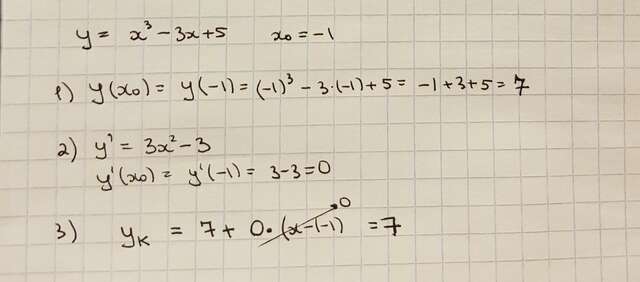 y = x³ - 3x + 5 x₀ = -1
1) y(x₀) = y(-1) = (-1)³ - 3·(-1) + 5 = -1 + 3 + 5 = 7
2) y' = 3x² - 3
y'(x₀) = y'(-1) = 3 - 3 = 0
3) yₖ = 7 + 0·(x-(-1) 0 = 7